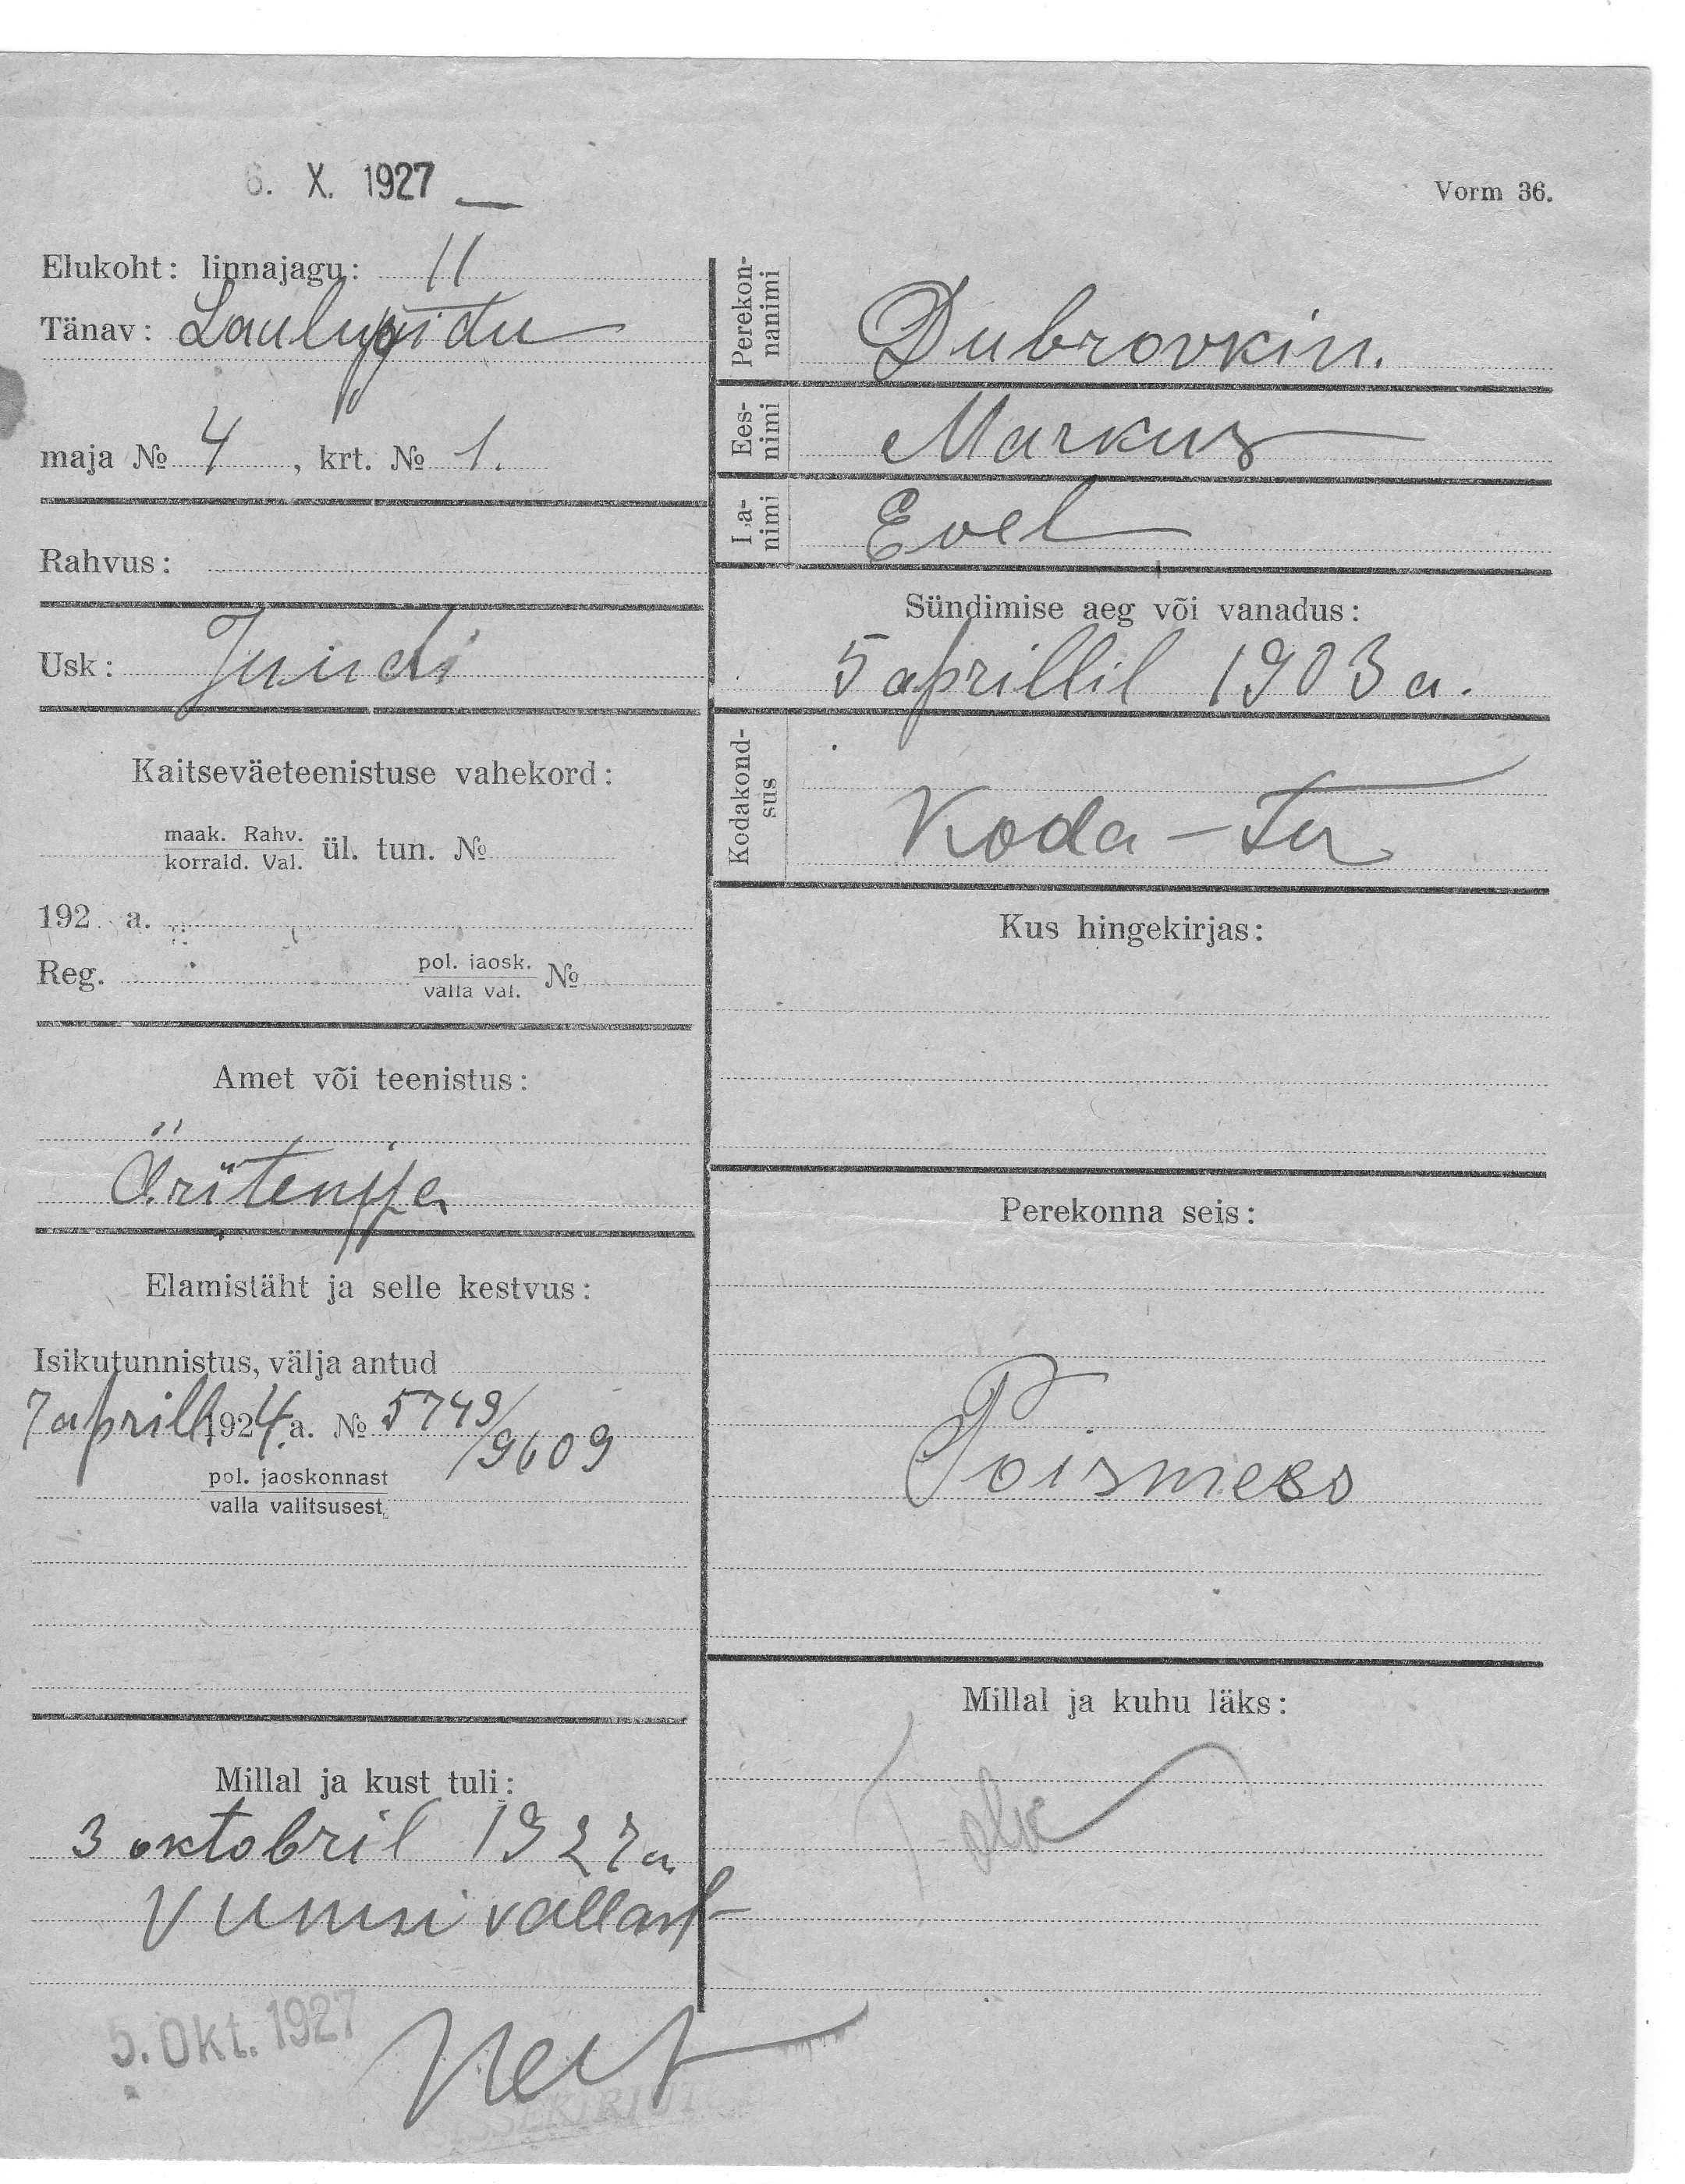 6. X. 1927
Vorm 36.
Elukoht: linnajagu: II
Tänav: Laulupidu
maja № 4, krt. № 1.
Rahvus:
Usk: Juudi
Kaitseväeteenistuse vahekord:
maak. Rahv.
korrald. Val. ül. tun. №
192 a.
Reg. pol. jaosk. №
valla val.
Amet või teenistus:
Äriteenija
Elamistäht ja selle kestvus:
Isikutunnistus, välja antud
7 aprill 1924 a. № 5749/9609
pol. jaoskonnast
valla valitsusest
Millal ja kust tuli:
3 oktobril 1927 a
vallast
5. Okt. 1927
Perekon-
nanimi
Dubrovkin.
Ees-
nimi
Markus
I.a-
nimi
Evel
Sündimise aeg või vanadus:
5 aprillil 1903 a.
Kodakond-
sus
Koda-ta
Kus hingekirjas:
Perekonna seis:
Poismees
Millal ja kuhu läks: